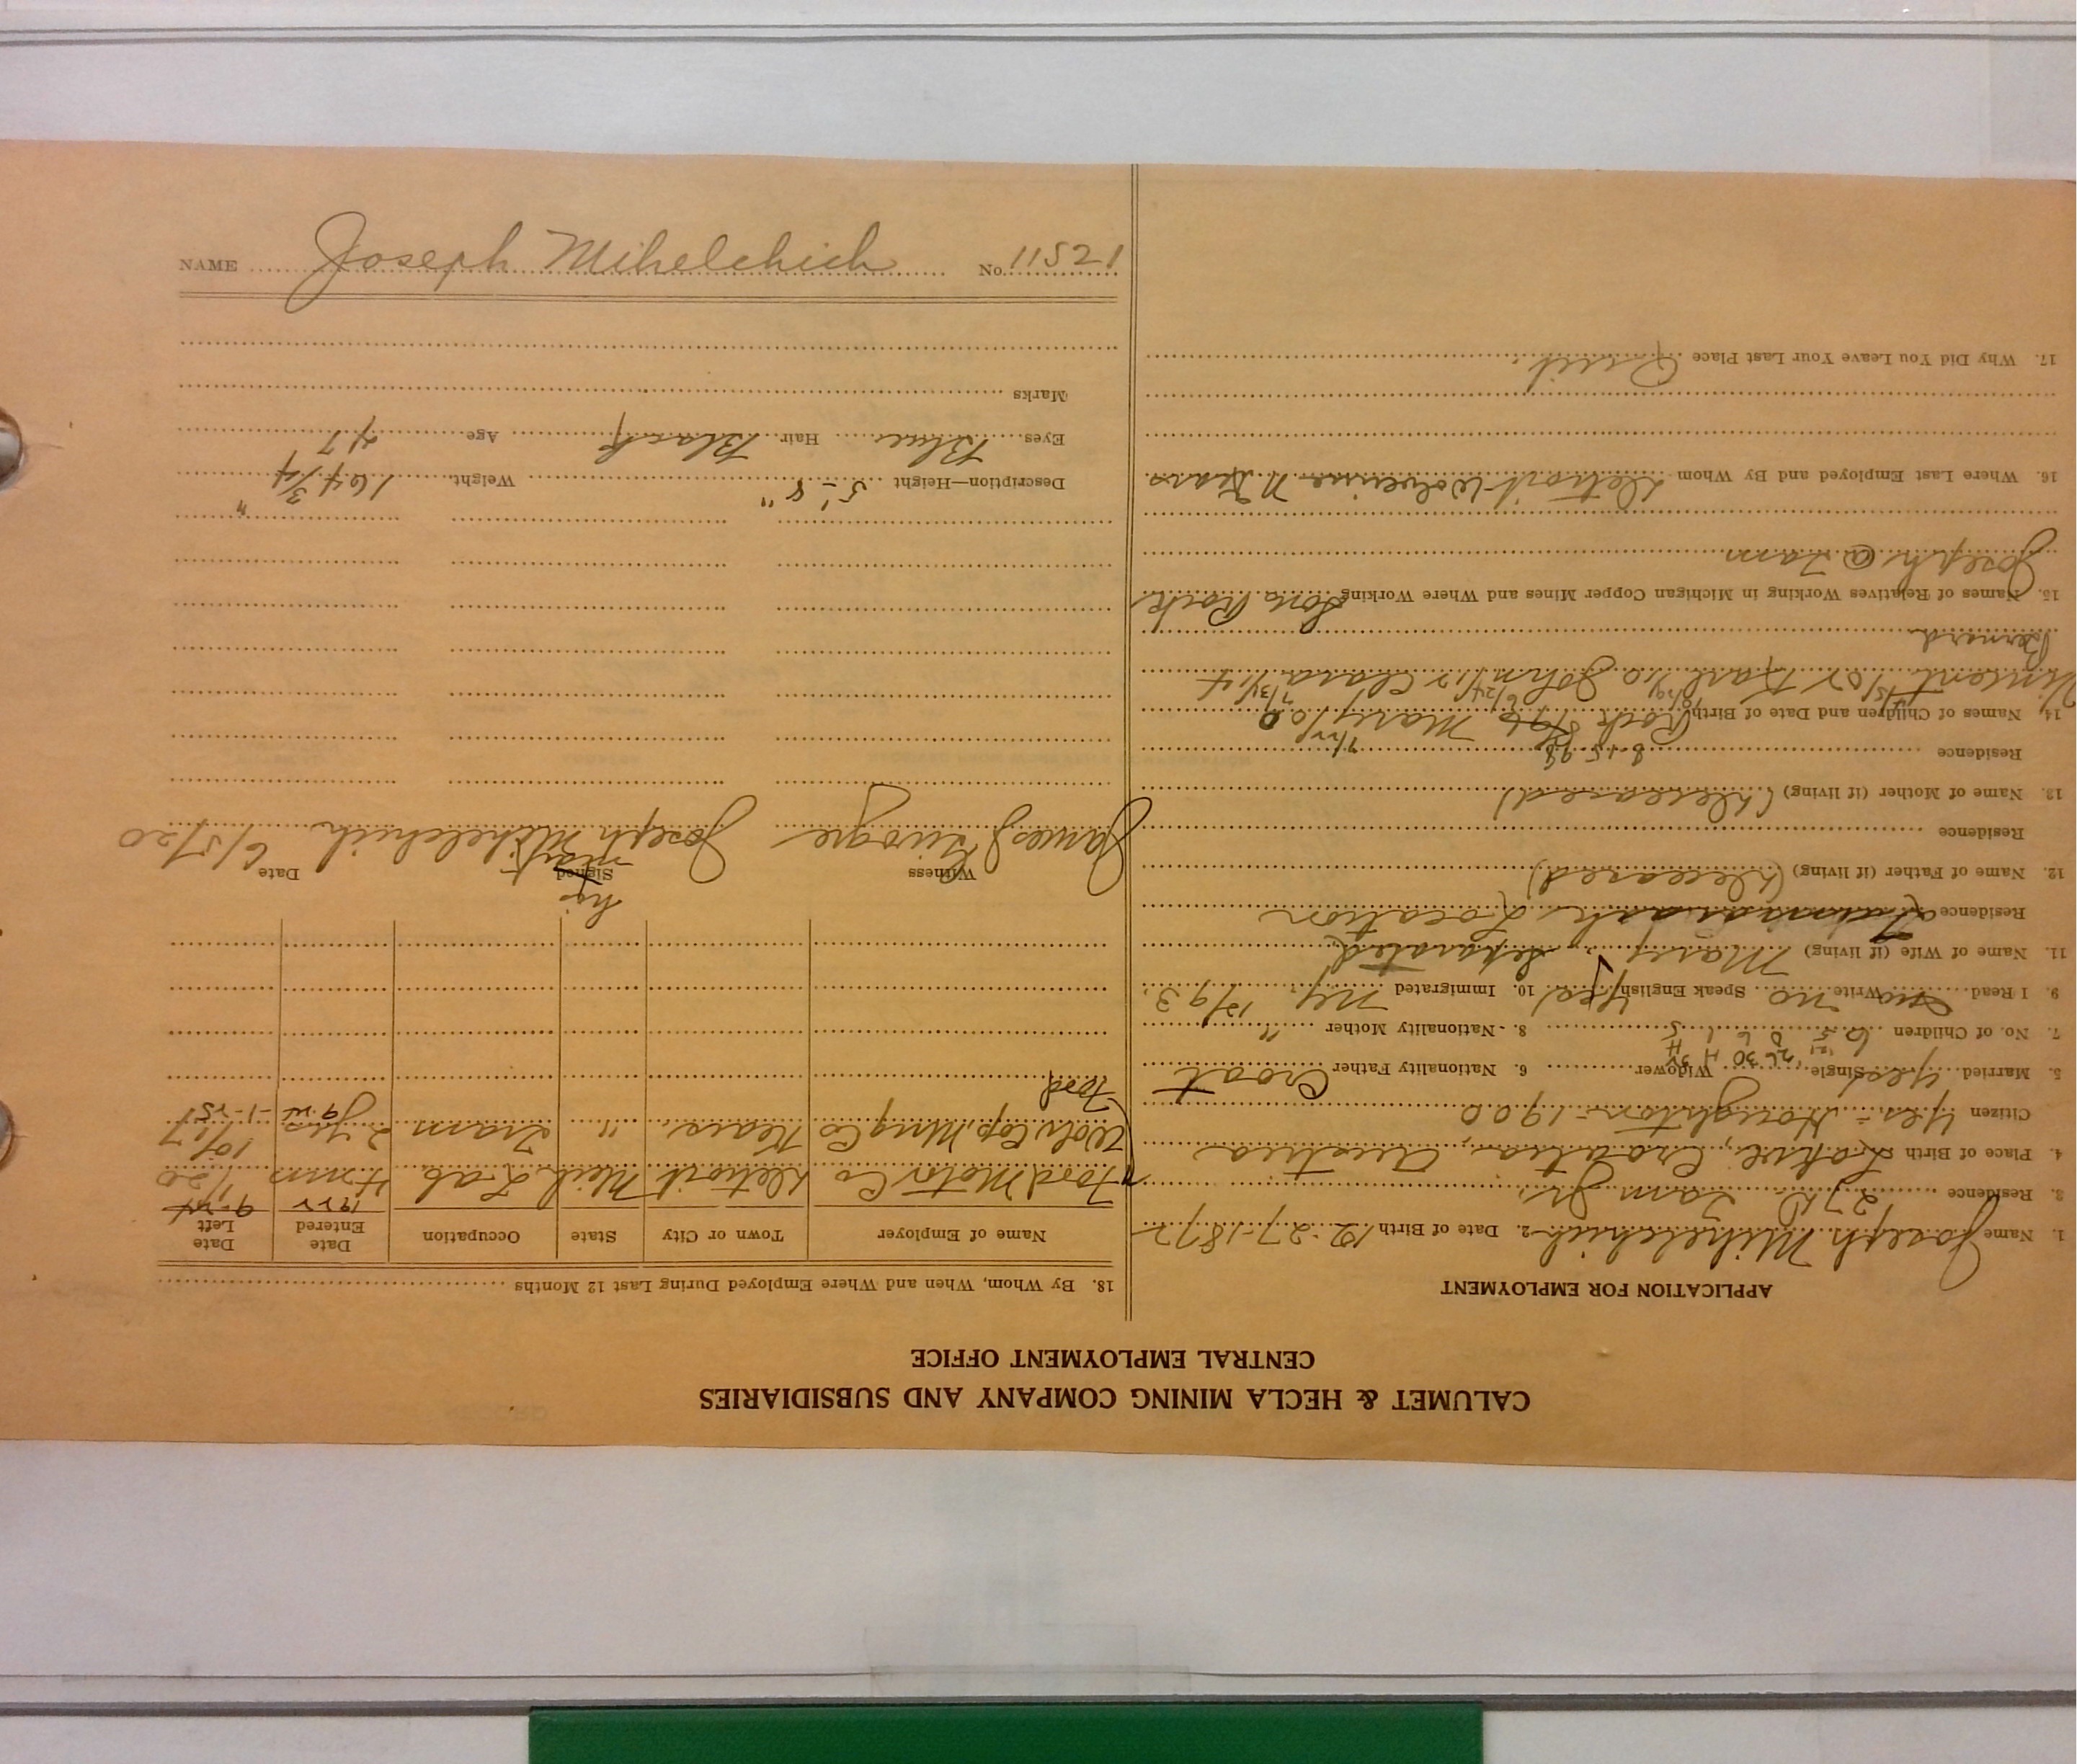 CALUMET & HECLA MINING COMPANY AND SUBSIDIARIES
CENTRAL EMPLOYMENT OFFICE
APPLICATION FOR EMPLOYMENT
1. Name Joseph Mihelchich 2. Date of Birth 12-27-1872
3. Residence 27 D Tam Jr.
4. Place of Birth Croatia, Austria
Citizen Yes - Houghton - 1900
5. Married yes Single Widower 6. Nationality Father Croat
7. No. of Children 6 8. Nationality Mother "
9. I Read no Write no Speak English Yes 10. Immigrated NY 12/93.
11. Name of Wife (if living) Mary - Separated
Residence Location
12. Name of Father (if living) (Deceased)
Residence
13. Name of Mother (if living) (Deceased)
Residence
8-15-98
14. Names of Children and Date of Birth Rock Mary 00
Vincent Karl 10 John Clara 7/31/14
Bernard
15. Names of Relatives Working in Michigan Copper Mines and Where Working Son Rock
Joseph @ Tam
16. Where Last Employed and By Whom Detroit Wolverine
17. Why Did You Leave Your Last Place Quit
18. By Whom, When and Where Employed During Last 12 Months
Name of Employer Town or City State Occupation Date Entered Date Left
1922
Ford Motor Co Detroit Mich Lab 4 mos 1/20
Wolv. Cop. Mng Co Kears. " Tram 2 yrs 10/17
Ford
Witness his Signed mark Date
James Joseph Mihelchich 6/5/20
Description—Height 5'-8" Weight 164
Eyes Blue Hair Black Age 47
Marks
NAME Joseph Mihelchich No. 11521